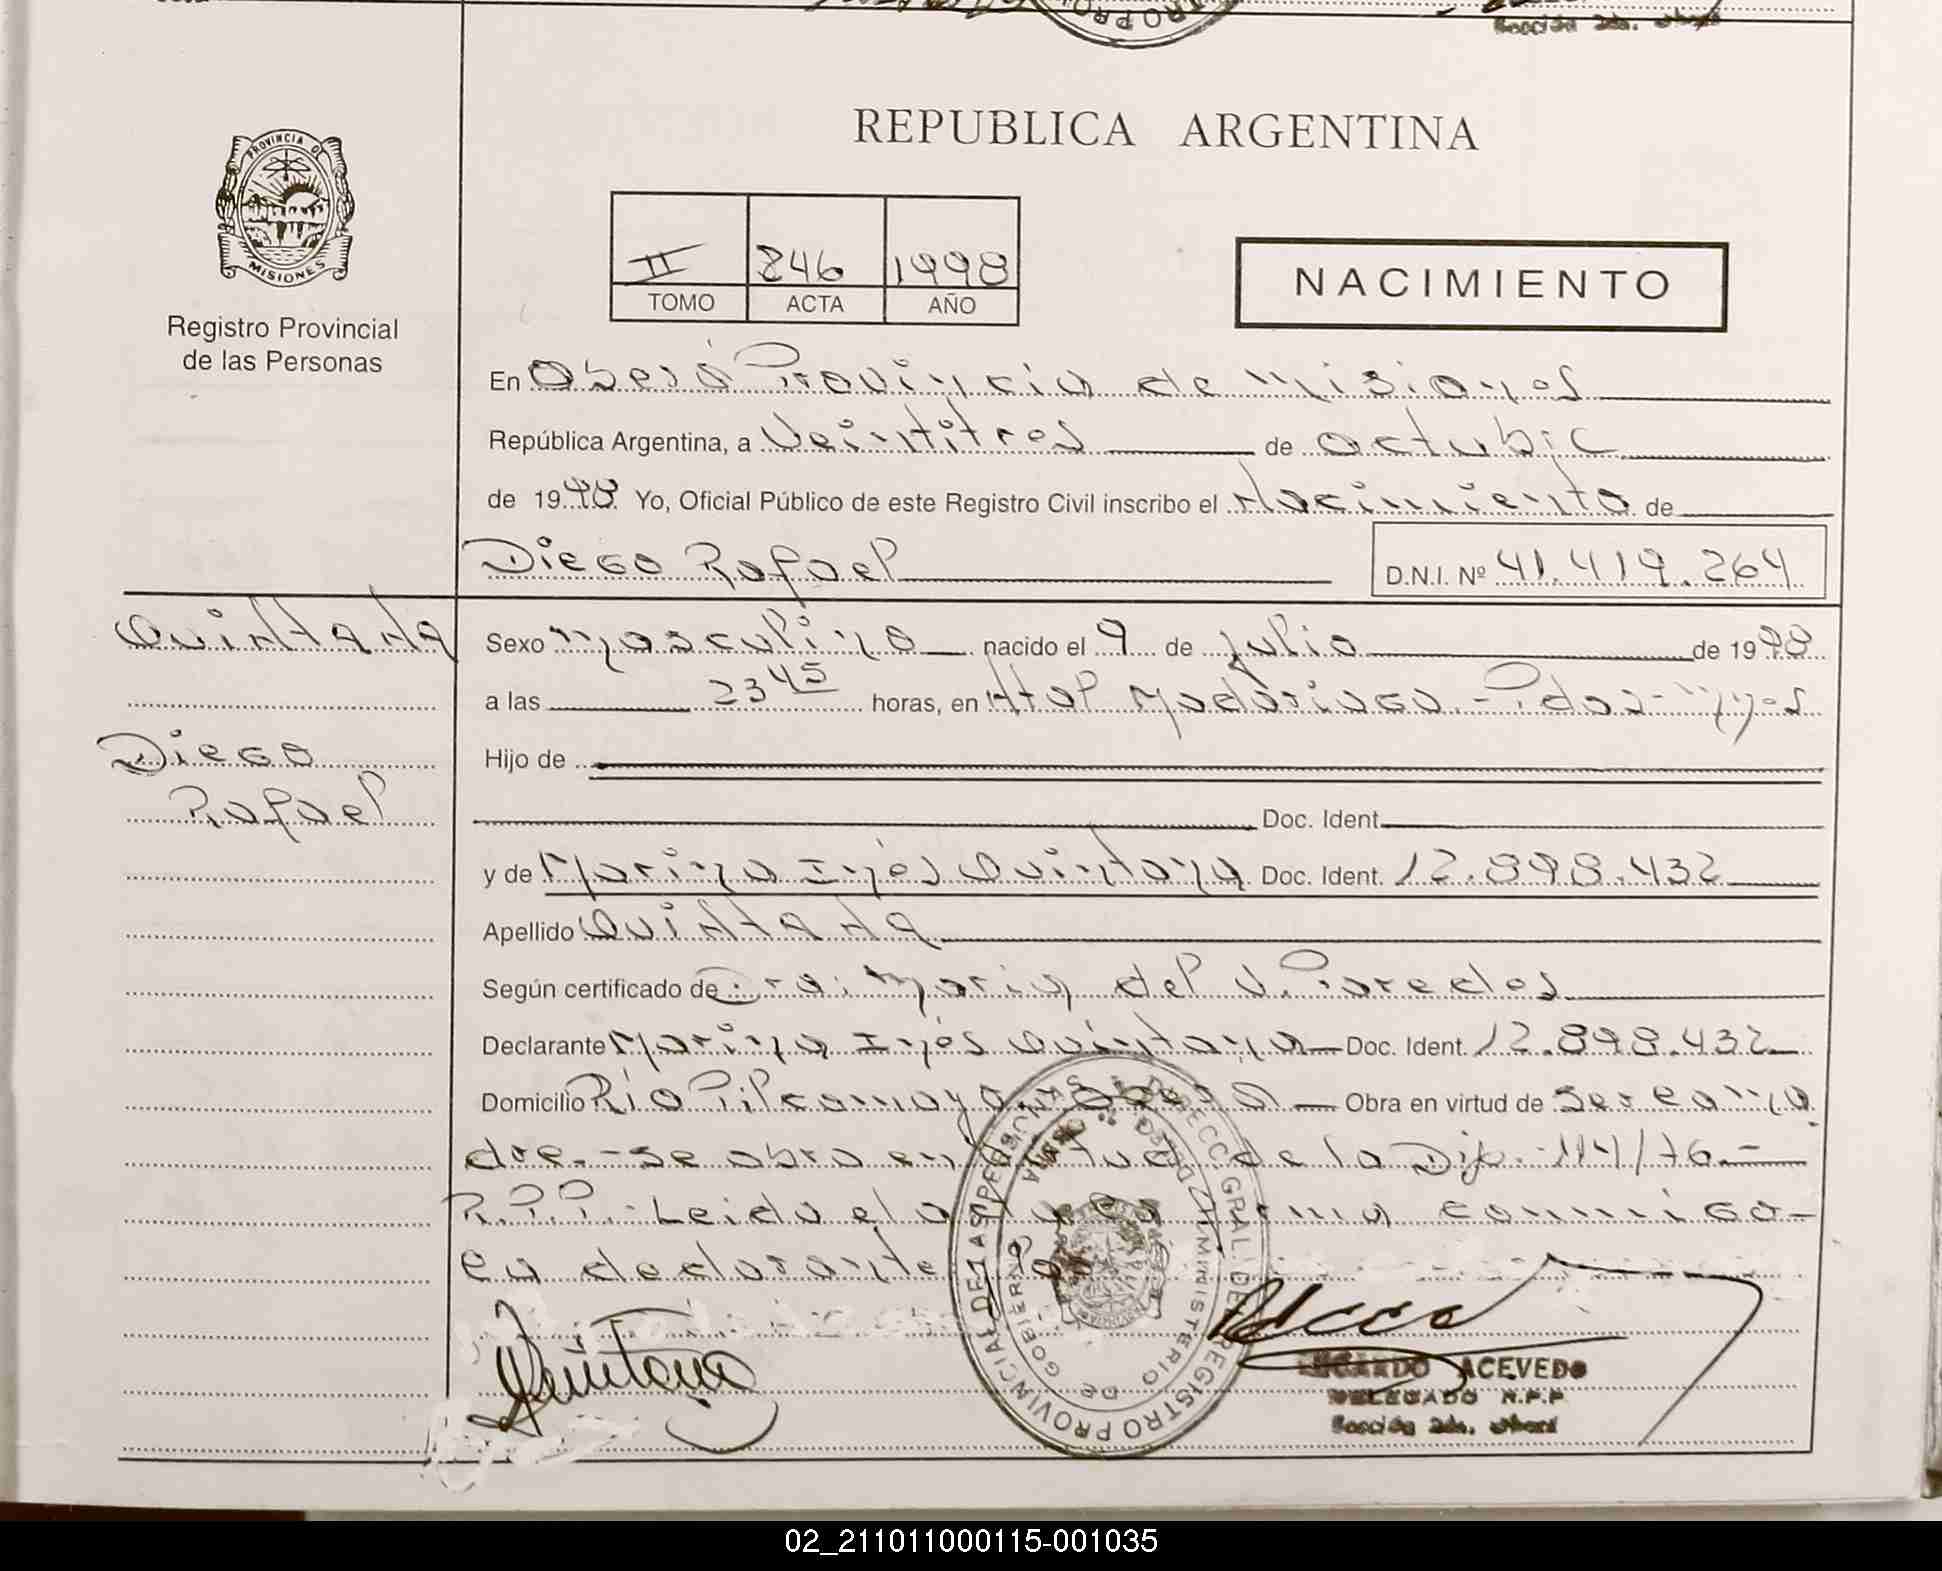 Sección 2da. Oberá
REPUBLICA ARGENTINA
PROVINCIA DE
MISIONES
Registro Provincial
de las Personas
II 246 1998
TOMO ACTA AÑO
NACIMIENTO
En Oberá Provincia de Misiones
República Argentina, a Veintitres de octubre
de 1998 Yo, Oficial Público de este Registro Civil inscribo el Nacimiento de
Diego Rafael D.N.I. Nº 41.419.264
Quintana
Diego
Rafael
Sexo masculino nacido el 9 de julio de 1998
a las 23 45 horas, en Htal Madariaga - Pdas - Mnes
Hijo de
Doc. Ident.
y de Marina Inés Quintana Doc. Ident. 12.898.432
Apellido Quintana
Según certificado de Dra: Maria del V. Paredes
Declarante Marina Inés Quintana Doc. Ident. 12.898.432
Domicilio Río Pilcomayo Obra en virtud de ser la ma
dre.- se obra en de la Disp. 114/76.-
R.P.P.- Leida el acta firma conmigo
la declarante
Quintana
ACEVEDO
DELEGADO R.P.P
Sección 2da. Oberá
REGISTRO PROVINCIAL DE LAS PERSONAS DIRECC. GRAL. DEL
MINISTERIO DE GOBIERNO
02_211011000115-001035